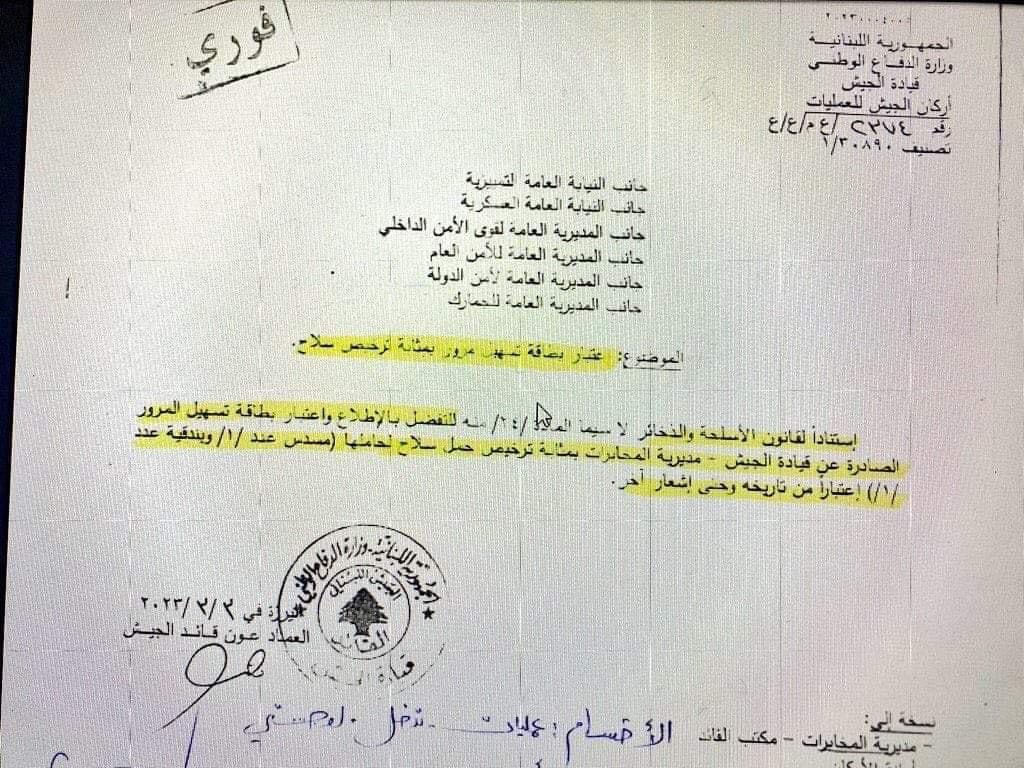 فوري
٢٠٢٣٠٠٠٤٠٠
الجمهورية اللبنانية
وزارة الدفاع الوطني
قيادة الجيش
أركان الجيش للعمليات
رقم ٢٣٧٤ /ع م/ع/ع
تصنيف ١/٣٠٨٩٠
جانب النيابة العامة التمييزية
جانب النيابة العامة العسكرية
جانب المديرية العامة لقوى الأمن الداخلي
جانب المديرية العامة للأمن العام
جانب المديرية العامة لأمن الدولة
جانب المديرية العامة للجمارك
الموضوع: إعتبار بطاقة تسهيل مرور بمثابة ترخيص سلاح.
إستناداً لقانون الأسلحة والذخائر لا سيما /٢٤/ منه للتفضل بالإطلاع واعتبار بطاقة تسهيل المرور
الصادرة عن قيادة الجيش - مديرية المخابرات بمثابة ترخيص حمل سلاح لحاملها (مسدس عدد /١/ وبندقية عدد
/١/) إعتباراً من تاريخه وحتى إشعار آخر.
الجمهورية اللبنانية - وزارة الدفاع الوطني
الجيش اللبناني
القائد
قيادة الجيش
اليرزة في ٢٠٢٣/٣/٣
العماد عون قائد الجيش
الأقسام: عمليات - تدخل
نسخة إلى:
- مديرية المخابرات - مكتب القائد